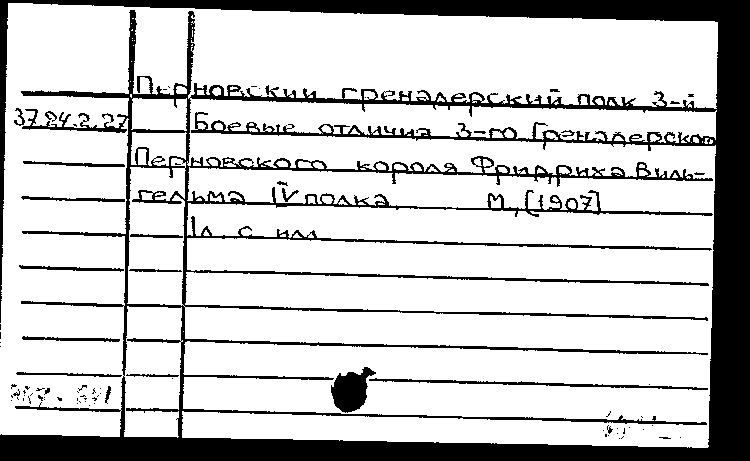 Перновский гренадерский полк, 3-й
37.24.2.27 Боевые отличия 3-го Гренадерского
Перновского короля Фридриха Виль-
гельма IV полка. М., [1907]
1 л. с илл.